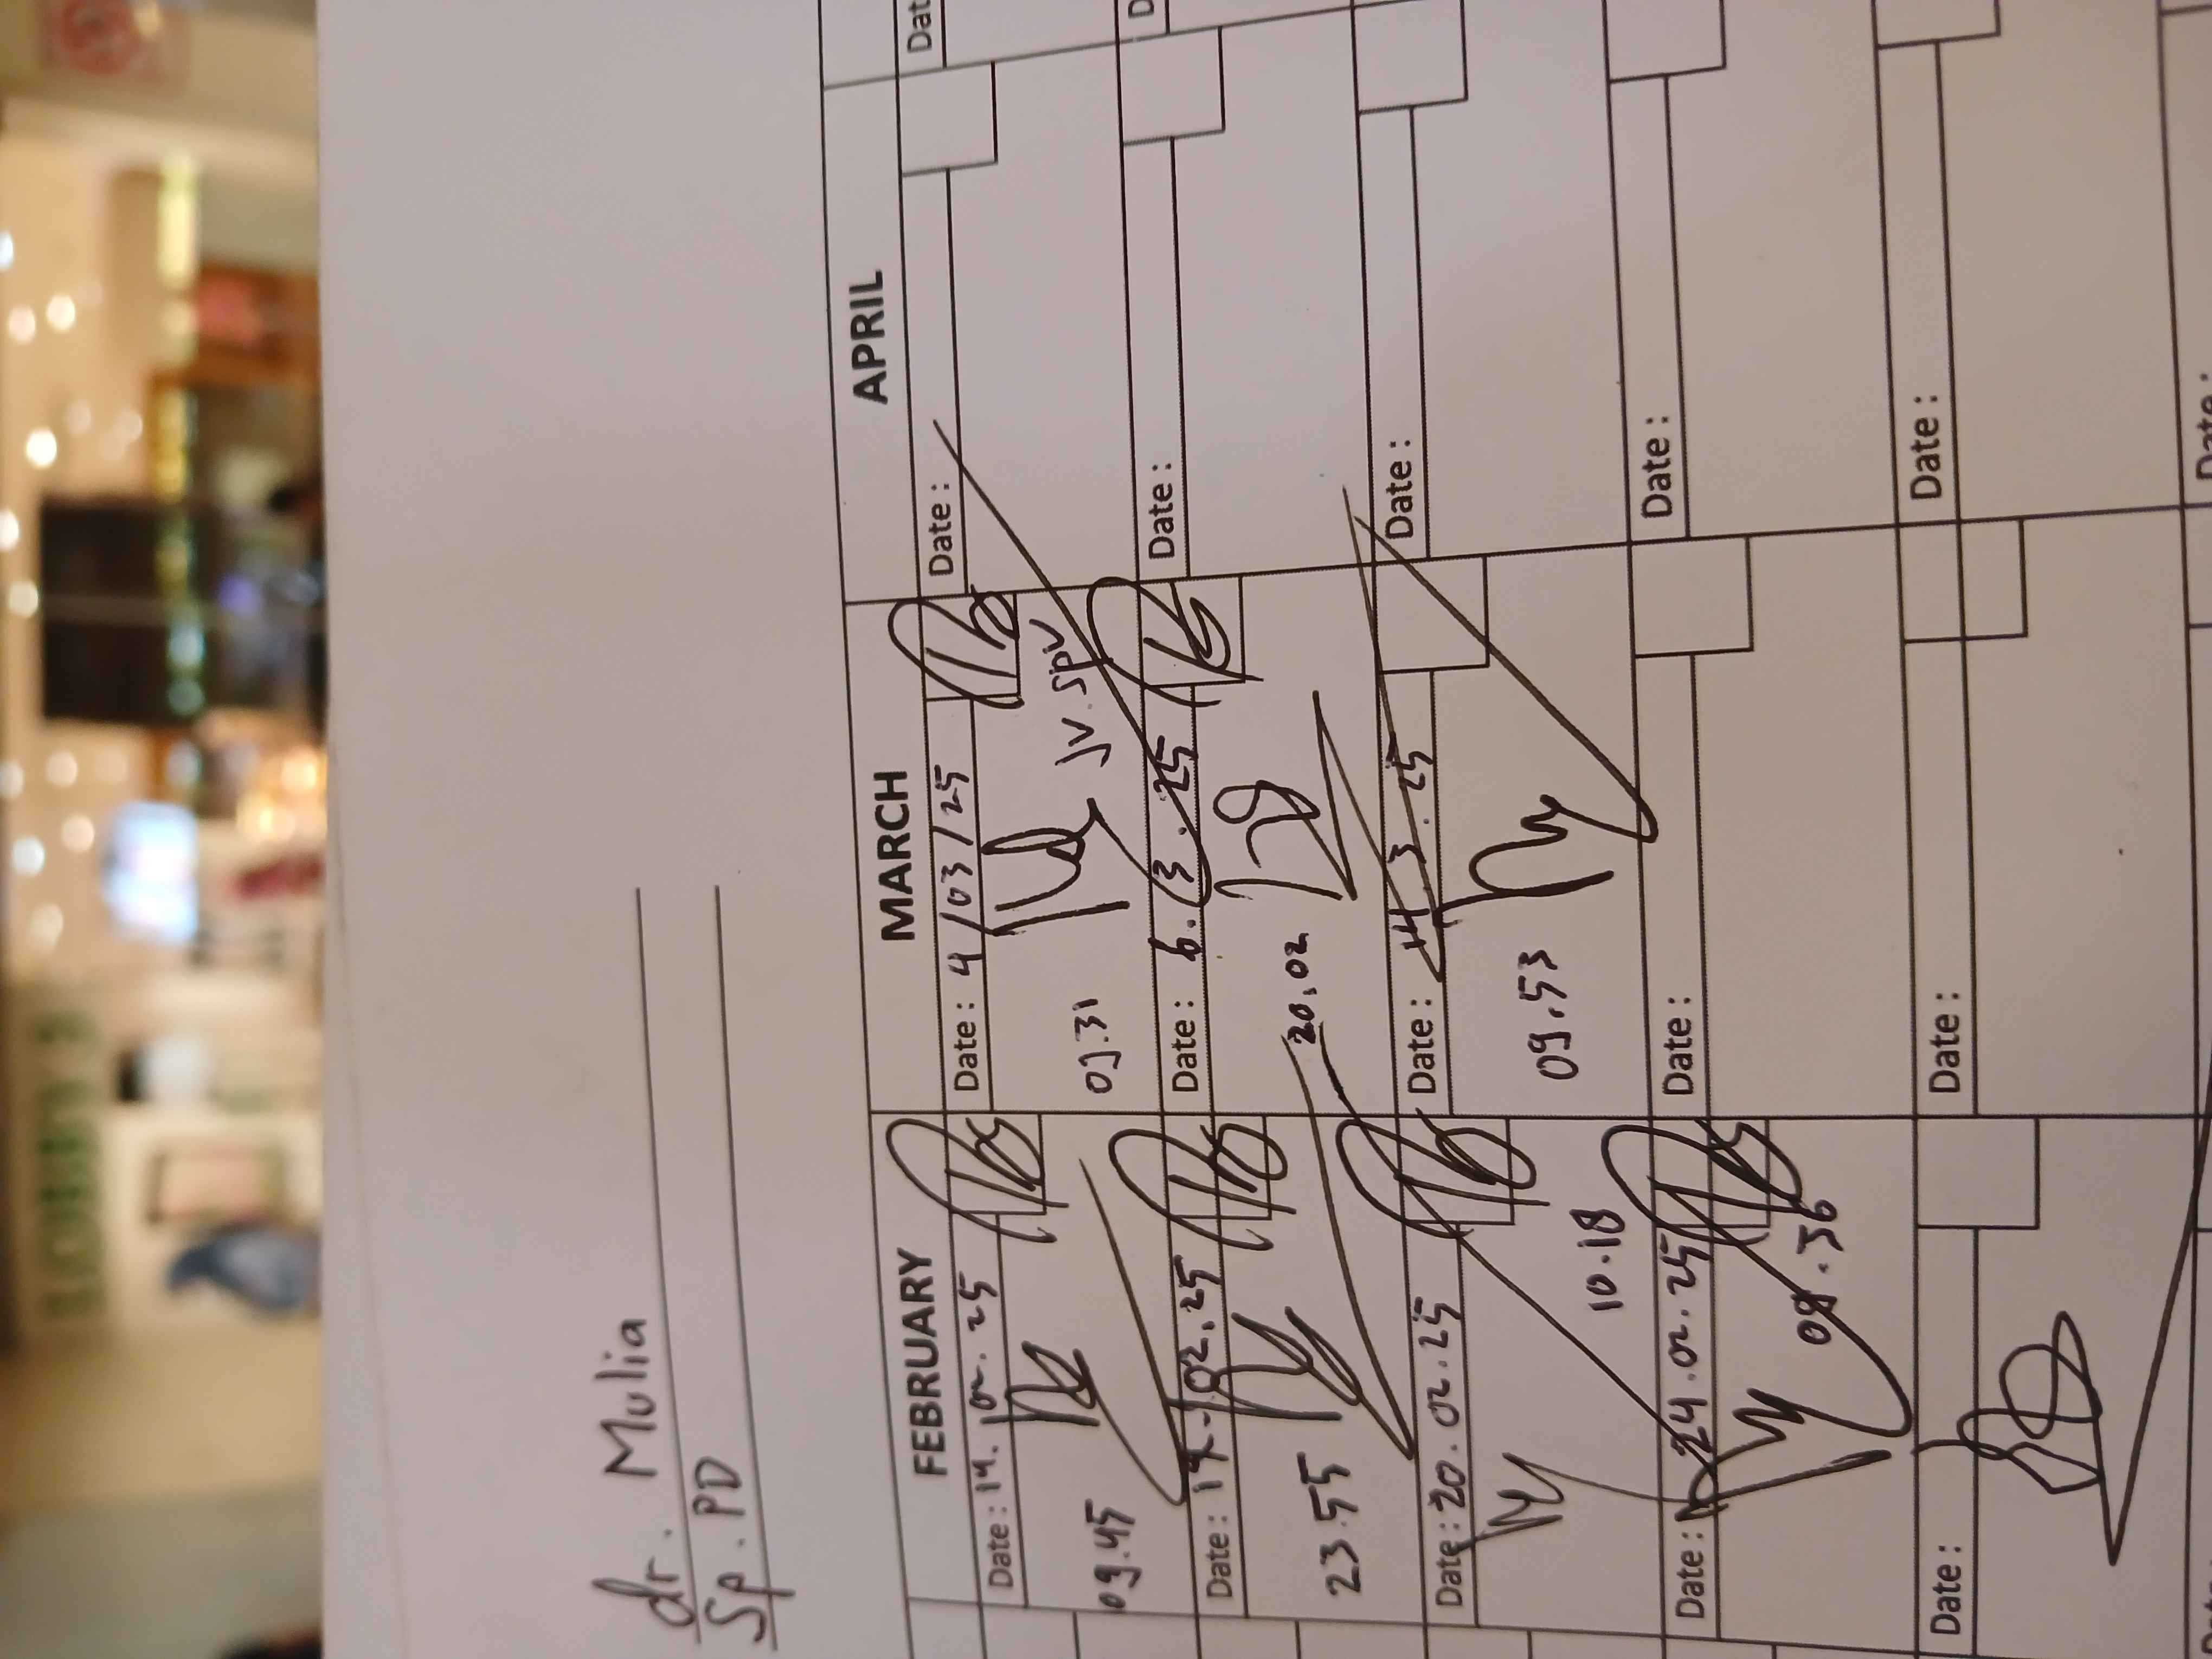 dr. Mulia
Sp. PD
FEBRUARY MARCH APRIL
Date: 14.02.25 Date: 4/03/25 Date: Dat
09.45 09.31 Jv. Spv
Date: 02.25 Date: 6.3.25 Date:
23.55 20.02
Date: 20.02.25 Date: 3.25 Date:
10.18 09.53
Date: 24.02.25 Date: Date:
.36
Date: Date: Date:
Date: